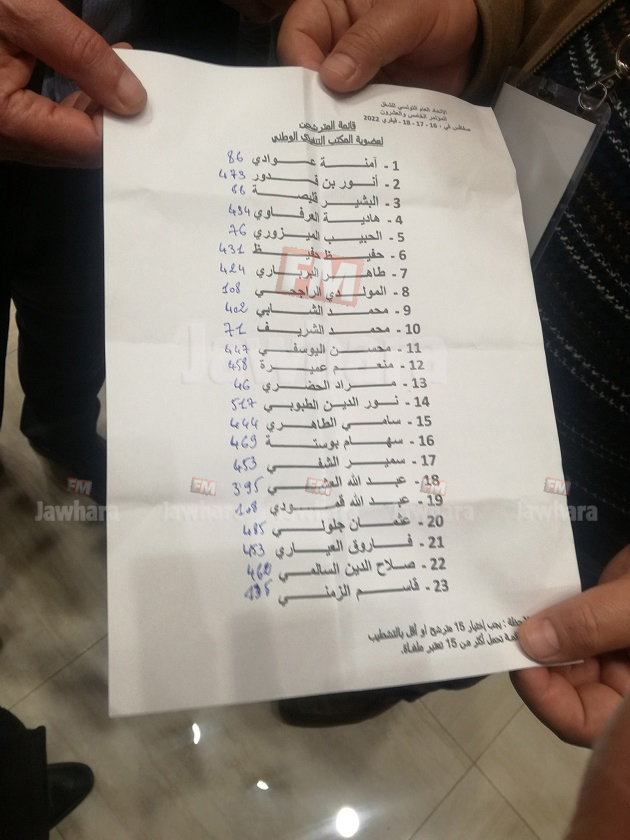 الاتحاد العام التونسي للشغل
المؤتمر الخامس والعشرون
صفاقس في - 16 - 17 - 18 - فيفري 2022
قائمة المترشحين
لعضوية المكتب التنفيذي الوطني
1 - آمنة عوادي 86
2 - أنور بن قدور 473
3 - البشير قليصة 88
4 - هادية العرفاوي 494
5 - الحبيب الميزوري 76
6 - حفيظ حفيظ 431
7 - طاهر البرباري 424
8 - المولدي الراجحي 108
9 - محمد الشابي 402
10 - محمد الشريف 71
11 - محسن اليوسفي 447
12 - منعم عميرة 458
13 - مراد الحضري 46
14 - نور الدين الطبوبي 517
15 - سامي الطاهري 444
16 - سهام بوستة 469
17 - سمير الشفي 453
18 - عبد الله العشي 395
19 - عبد الله 108
20 - عثمان جلولي 485
21 - فاروق العياري 453
22 - صلاح الدين السالمي 462
23 - قاسم الزمني
: يجب إختيار 15 مترشح او أقل بالتشطيب
تحمل أكثر من 15 تعتبر ملغاة.
FM
Jawhara
FM
Jawhara
FM
Jawhara
FM
Jawhara
FM
Jawhara